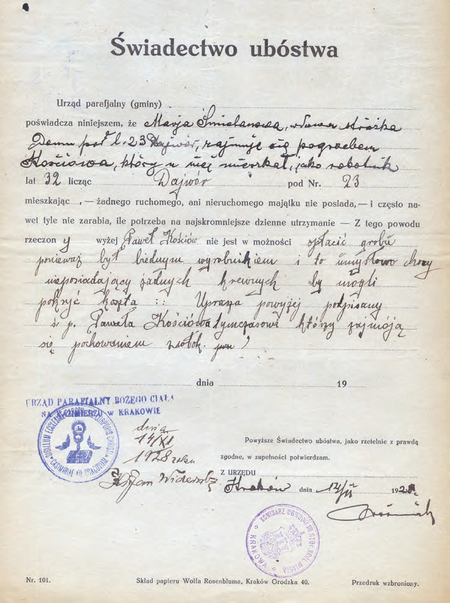 Świadectwo ubóstwa
Urząd parafjalny (gminy)
poświadcza niniejszem, że Marja Śmielanowa, wdowa stróżka
Domu pod l. 23 Dajwór, zajmuje się pogrzebem
Kościówa, który u niej mieszkał, jako robotnik
lat 32 licząc Dajwór pod Nr. 23
mieszkając , — żadnego ruchomego, ani nieruchomego majątku nie posiada, — i często na-
wet tyle nie zarabia, ile potrzeba na najskromniejsze dzienne utrzymanie — Z tego powodu
rzeczony wyżej Paweł Kościów nie jest w możności opłacić grobu
ponieważ był biednym wyrobnikiem i to umysłowo chory
nieposiadający żadnych krewnych by mogli
pokryć koszta :: Uprasza powyżej podpisany
ś p. Pawła Kościówa którzy zajmują
się pochowaniem zwłok
dnia 19
URZĄD PARAFJALNY BOŻEGO CIAŁA
NA KAZIMIERZU W KRAKOWIE
dnia
14/XI
1928 roku
Powyższe Świadectwo ubóstwa, jako rzetelnie z prawdą
zgodne, w zupełności potwierdzam.
Z URZĘDU
X Jan
Kraków dnia 1928
Nr. 101. Skład papieru Wolfa Rosenbluma, Kraków Grodzka 40. Przedruk wzbroniony.